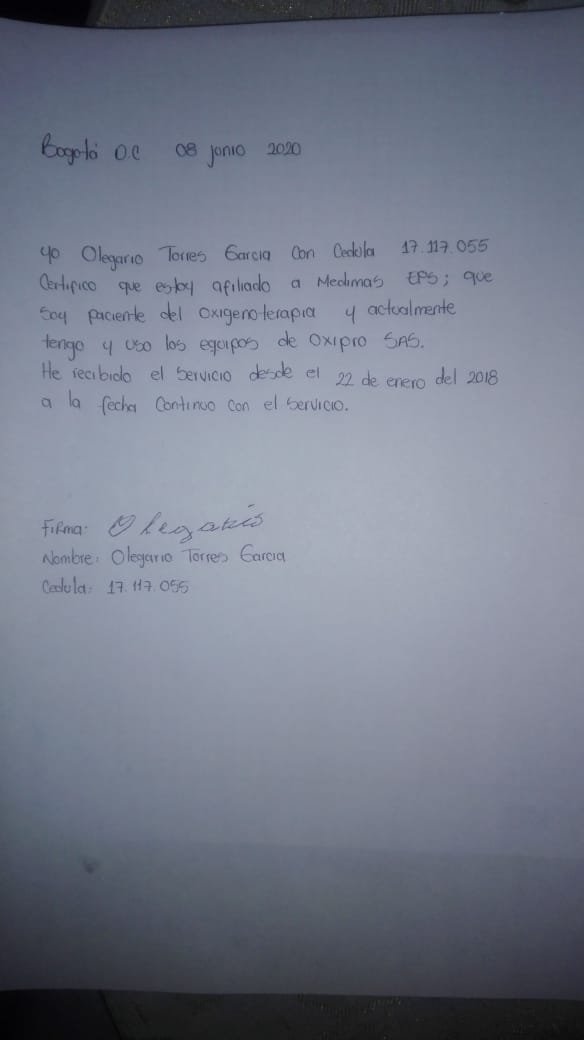 Bogotá D.C 08 junio 2020
Yo Olegario Torres Garcia Con Cedula 17.117.055
Certifico que estoy afiliado a Medimas EPS; que
Soy paciente del Oxigenoterapia y actualmente
tengo y uso los equipos de Oxipro SAS.
He recibido el Servicio desde el 22 de enero del 2018
a la fecha Continuo con el Servicio.
Firma: Olegario
Nombre: Olegario Torres Garcia
Cedula: 17.117.055